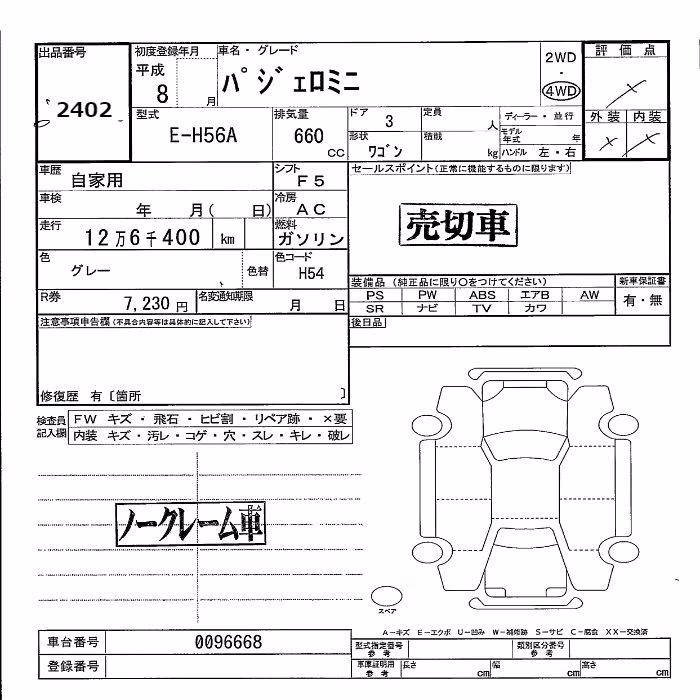 出品番号
2402
初度登録年月
平成
8 月
車名・グレード
パジェロミニ
2WD
・
4WD
評価点
外装 内装
型式
E-H56A
排気量
660
CC
ドア
3
定員
人
形状
ワゴン
積載
kg
ディーラー・並行
モデル年式 年
ハンドル 左・右
車歴
自家用
シフト
F5
車検
年 月( 日)
冷房
AC
走行
12万6千400 km
燃料
ガソリン
色
グレー
色替
色コード
H54
R券
7,230円
名変通知期限
月 日
セールスポイント(正常に機能するものに限ります)
売切車
装備品 (純正品に限り○をつけてください)
新車保証書
PS PW ABS エアB AW
SR ナビ TV カワ
有・無
後日品
注意事項申告欄(不具合内容等は具体的に記入して下さい)
修復歴 有〔箇所 〕
検査員記入欄
FW キズ・飛石・ヒビ割・リペア跡・×要
内装 キズ・汚レ・コゲ・穴・スレ・キレ・破レ
ノークレーム車
スペア
A―キズ E―エクボ U―凹み W―補修跡 S―サビ C―腐食 XX―交換済
車台番号
0096668
登録番号
型式指定番号
参考
類別区分番号
参考
車庫証明用
参考
長さ
cm
幅
cm
高さ
cm